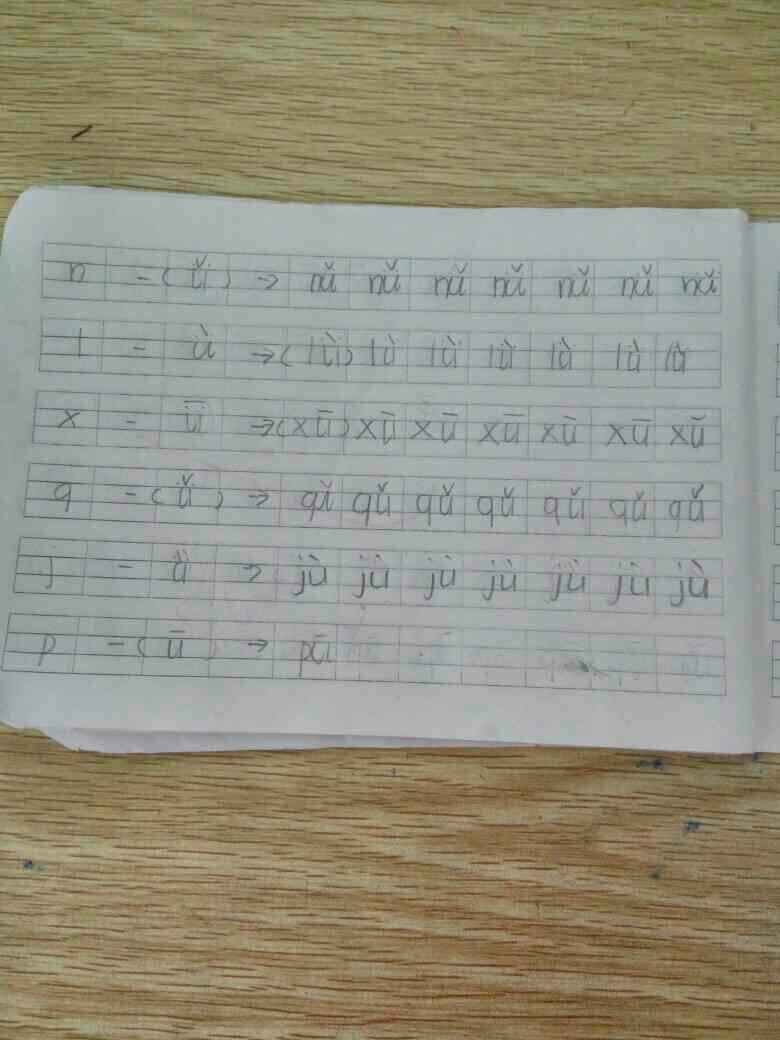 n - ( ǚ ) → nǚ nǚ nǚ nǚ nǚ nǚ nǚ
l - ǜ → ( lǜ ) lǜ lǜ lǜ lǜ lǜ lǜ
x - ǖ → ( xū ) xū xū xū xū xū xū
q - ( ǚ ) → qǔ qǔ qǔ qǔ qǔ qǔ qǔ
j - ǜ → jù jù jù jù jù jù jù
p - ( ū ) → pū